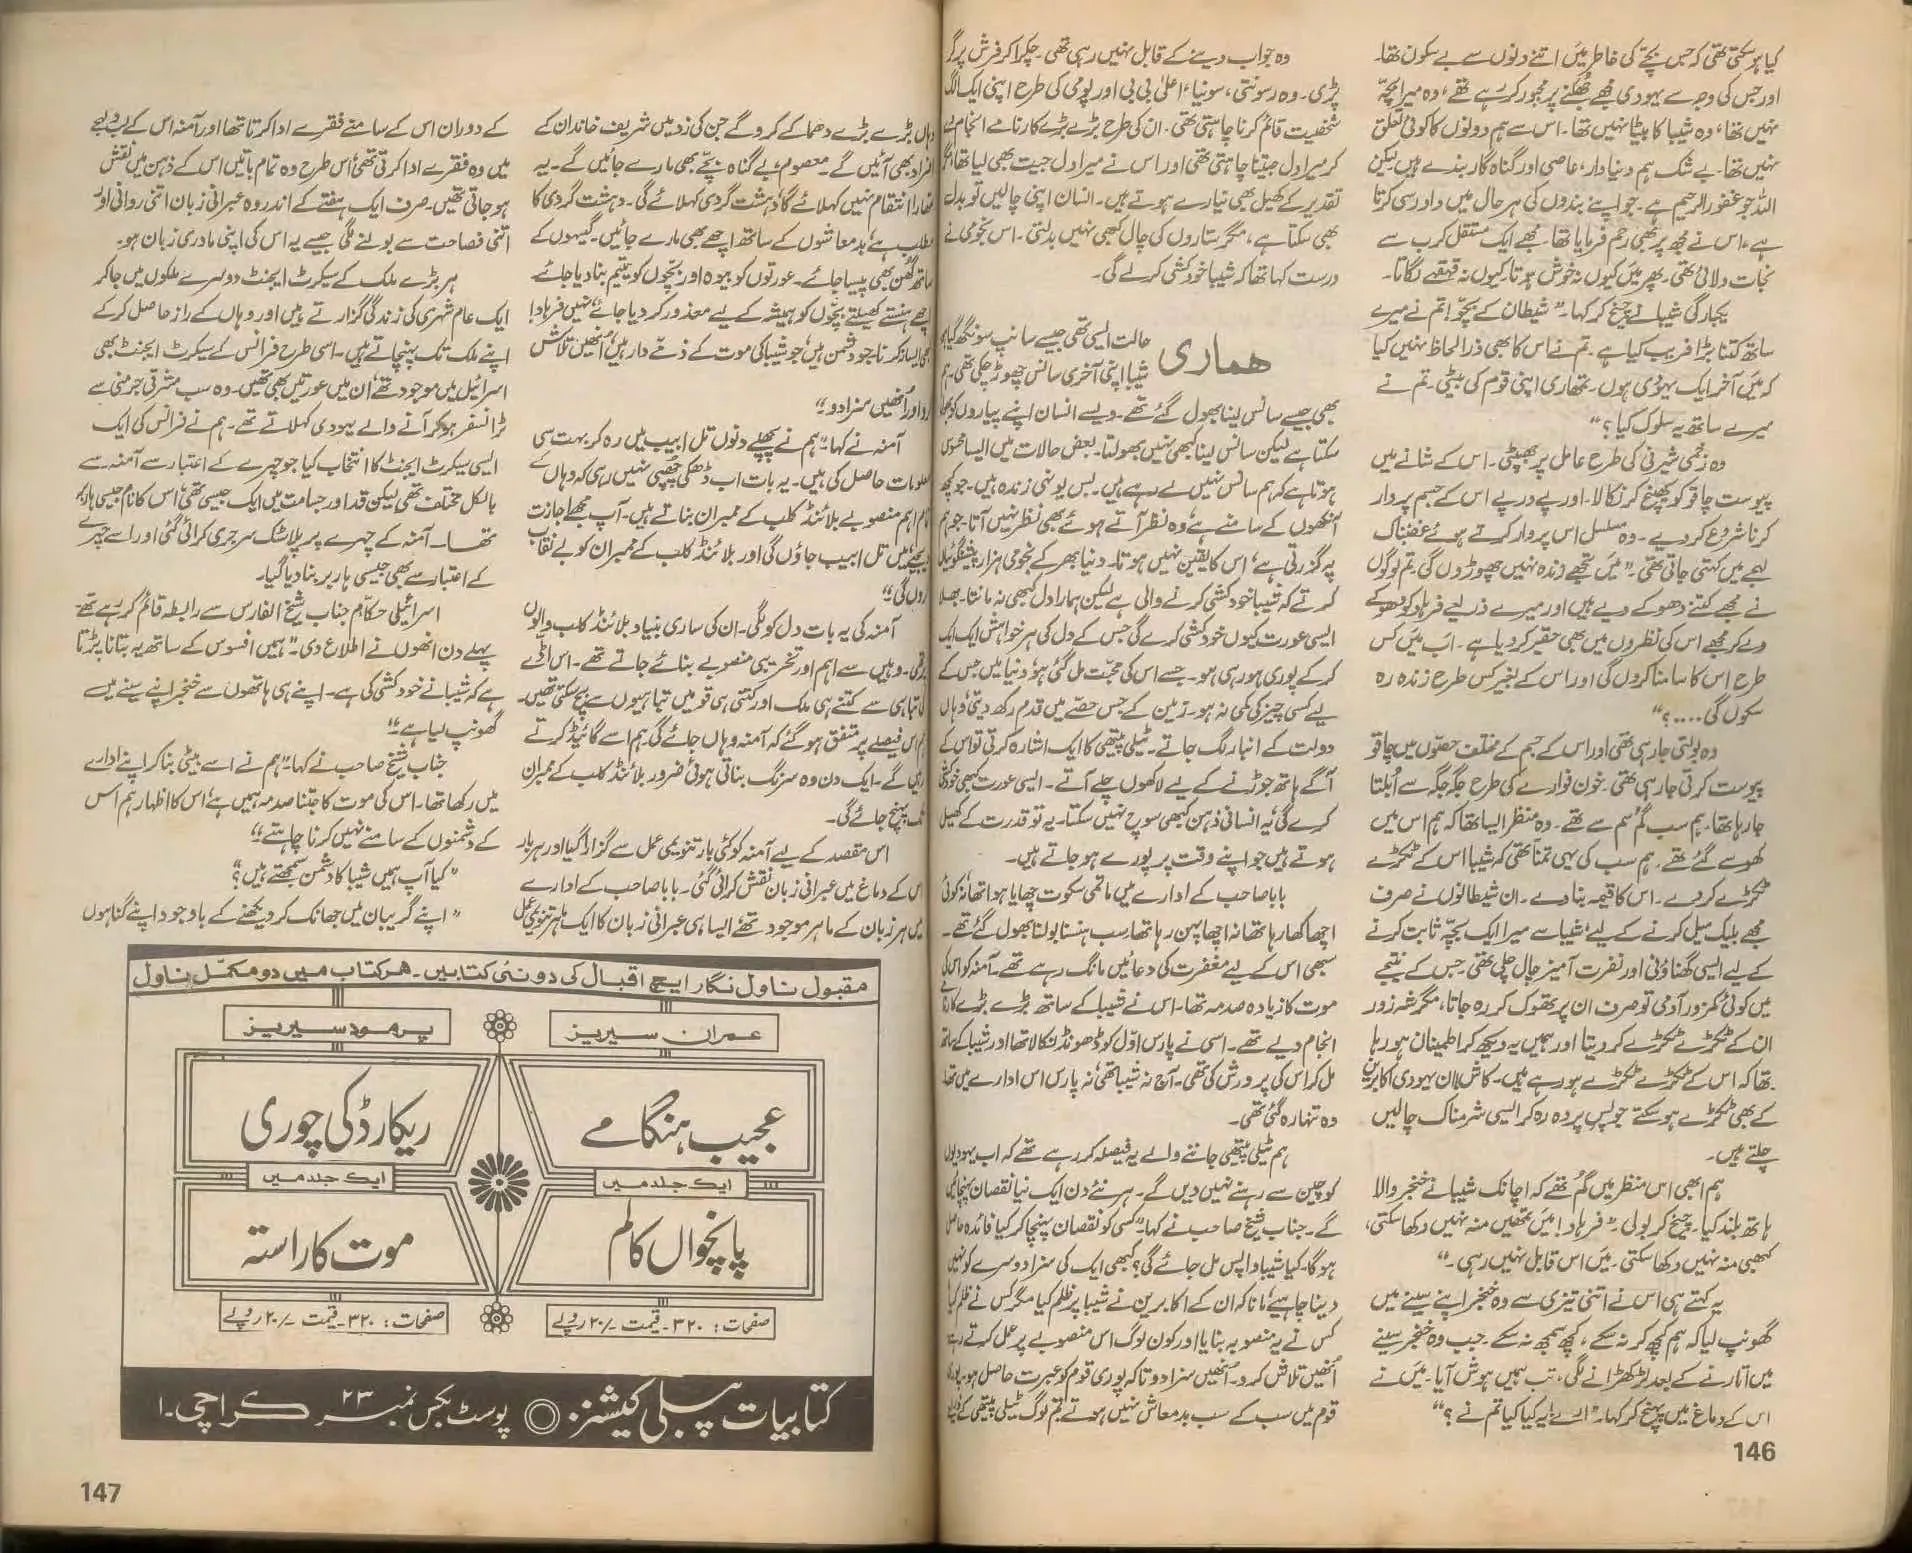 کیا ہو سکتی تھی کہ جس بچے کی خاطر میں اتنے دنوں سے بے سکون تھا۔
اور جس کی وجہ سے یہودی مجھے جھکنے پر مجبور کر رہے تھے، وہ میرا بچہ
نہیں تھا، وہ شیبا کا بیٹا نہیں تھا۔ اس سے ہم دونوں کا کوئی تعلق
نہیں تھا۔ بے شک ہم دنیا دار، عاصی اور گناہ گار بندے ہیں لیکن
اللہ جو غفور الرحیم ہے۔ جو اپنے بندوں کی ہر حال میں داد رسی کرتا
ہے، اس نے مجھ پر بھی رحم فرمایا تھا۔ مجھے ایک مستقل کرب سے
نجات دلائی تھی۔ پھر میں کیوں نہ خوش ہوتا، کیوں نہ قہقہے لگاتا۔
یکبارگی شیبا نے چیخ کر کہا۔ "شیطان کے بچو! تم نے میرے
ساتھ کتنا بڑا فریب کیا ہے۔ تم نے اس کا بھی ذرا لحاظ نہیں کیا
کہ میں آخر ایک یہودی ہوں۔ تمھاری اپنی قوم کی بیٹی۔ تم نے
میرے ساتھ یہ سلوک کیا؟"
وہ زخمی شیرنی کی طرح عامل پر جھپٹی۔ اس کے شانے میں
پیوست چاقو کو کھینچ کر نکالا۔ اور پے در پے اس کے جسم پر وار
کرنا شروع کر دیے۔ وہ مسلسل اس پر وار کرتے ہوئے غضبناک
لہجے میں کہتی جاتی تھی۔ "میں تجھے زندہ نہیں چھوڑوں گی۔ تم لوگوں
نے مجھے کتنے دھوکے دیے ہیں اور میرے ذریعے فرہاد کو دھوکے
دے کر مجھے اس کی نظروں میں بھی حقیر کر دیا ہے۔ اب میں کس
طرح اس کا سامنا کروں گی اور اس کے بغیر کس طرح زندہ رہ
سکوں گی....؟"
وہ بولتی جا رہی تھی اور اس کے جسم کے مختلف حصوں میں چاقو
پیوست کرتی جا رہی تھی۔ خون فوارے کی طرح جگہ جگہ سے اُبلتا
جا رہا تھا۔ ہم سب گم سم سے تھے۔ وہ منظر ایسا تھا کہ ہم اس میں
کھو سے گئے تھے۔ ہم سب کی یہی تمنا تھی کہ شیبا اس کے ٹکڑے
ٹکڑے کر دے۔ اس کا قیمہ بنا دے۔ ان شیطانوں نے صرف
مجھے بلیک میل کرنے کے لیے، شیبا سے میرا ایک بچہ ثابت کرنے
کے لیے ایسی گھناؤنی اور نفرت آمیز چال چلی تھی۔ جس کے نتیجے
میں کوئی کمزور آدمی تو صرف ان پر تھوک کر رہ جاتا، مگر شہ زور
ان کے ٹکڑے ٹکڑے کر دیتا اور ہمیں یہ دیکھ کر اطمینان ہو رہا
تھا کہ اس کے ٹکڑے ٹکڑے ہو رہے ہیں۔ کاش ان یہودی اکابرین
کے بھی ٹکڑے ہو سکتے جو پس پردہ رہ کر ایسی شرمناک چالیں
چلتے ہیں۔
ہم ابھی اس منظر میں گُم تھے کہ اچانک شیبا نے خنجر والا
ہاتھ بلند کیا۔ چیخ کر بولی۔ "فرہاد! میں تمھیں منہ نہیں دکھا سکتی،
کبھی منہ نہیں دکھا سکتی۔ میں اس قابل نہیں رہی۔"
یہ کہتے ہی اس نے اتنی تیزی سے وہ خنجر اپنے سینے میں
گھونپ لیا کہ ہم کچھ کر نہ سکے، کچھ سمجھ نہ سکے۔ جب وہ خنجر سینے
میں اتارنے کے بعد لڑکھڑانے لگی، تب ہمیں ہوش آیا۔ میں نے
اس کے دماغ میں پہنچ کر کہا۔ "ارے! یہ کیا کیا تم نے؟"
146
وہ جواب دینے کے قابل نہیں رہی تھی۔ چکرا کر فرش پر گر
پڑی۔ وہ رسونتی، سونیا، اعلیٰ بی بی اور پومی کی طرح اپنی ایک الگ
شخصیت قائم کرنا چاہتی تھی۔ ان کی طرح بڑے بڑے کارنامے انجام دے
کر میرا دل جیتنا چاہتی تھی اور اس نے میرا دل جیت بھی لیا تھا، مگر
تقدیر کے کھیل بھی نیارے ہوتے ہیں۔ انسان اپنی چالیں تو بدل
بھی سکتا ہے، مگر ستاروں کی چال کبھی نہیں بدلتی۔ اس نجومی نے
درست کہا تھا کہ شیبا خودکشی کر لے گی۔
ھماری حالت ایسی تھی جیسے سانپ سونگھ گیا ہو
شیبا اپنی آخری سانس چھوڑ چکی تھی۔ ہم
بھی جیسے سانس لینا بھول گئے تھے۔ ویسے انسان اپنے پیاروں کو بھول
سکتا ہے لیکن سانس لینا کبھی نہیں بھولتا۔ بعض حالات میں ایسا محسوس
ہوتا ہے کہ ہم سانس نہیں لے رہے ہیں۔ بس یونہی زندہ ہیں۔ جو کچھ
آنکھوں کے سامنے ہے، وہ نظر آتے ہوئے بھی نظر نہیں آتا۔ جو ہم
پر گزرتی ہے، اس کا یقین نہیں ہوتا۔ دنیا بھر کے نجومی ہزار پیشگوئیاں
کرتے کہ شیبا خودکشی کرنے والی ہے لیکن ہمارا دل کبھی نہ مانتا۔ بھلا
ایسی عورت کیوں خودکشی کرے گی جس کے دل کی ہر خواہش ایک ایک
کر کے پوری ہو رہی ہو۔ جسے اس کی محبت مل گئی ہو، دنیا میں جس کے
لیے کسی چیز کی کمی نہ ہو۔ زمین کے جس حصے میں قدم رکھ دیتی، وہاں
دولت کے انبار لگ جاتے۔ ٹیلی پیتھی کا ایک اشارہ کرتی تو اس کے
آگے ہاتھ جوڑنے کے لیے لاکھوں چلے آتے۔ ایسی عورت کبھی خودکشی
کرے گی، یہ انسانی ذہن کبھی سوچ نہیں سکتا۔ یہ تو قدرت کے کھیل
ہوتے ہیں جو اپنے وقت پر پورے ہو جاتے ہیں۔
بابا صاحب کے ادارے میں ماتمی سکوت چھایا ہوا تھا، نہ کوئی
اچھا کھا رہا تھا نہ اچھا پہن رہا تھا، سب ہنسنا بولنا بھول گئے تھے۔
سبھی اس کے لیے مغفرت کی دعائیں مانگ رہے تھے۔ آمنہ کو اس کی
موت کا زیادہ صدمہ تھا۔ اس نے شیبا کے ساتھ بڑے بڑے کارنامے
انجام دیے تھے۔ اسی نے پارس اول کو ڈھونڈ نکالا تھا اور شیبا کے ساتھ
مل کر اس کی پرورش کی تھی۔ آج نہ شیبا تھی، نہ پارس اس ادارے میں تھا۔
وہ تنہا رہ گئی تھی۔
ہم ٹیلی پیتھی جاننے والے یہ فیصلہ کر رہے تھے کہ اب یہودیوں
کو چین سے رہنے نہیں دیں گے۔ ہر نئے دن ایک نیا نقصان پہنچائیں
گے۔ جناب شیخ صاحب نے کہا۔ "کسی کو نقصان پہنچا کر کیا فائدہ حاصل
ہوگا۔ کیا شیبا واپس مل جائے گی؟ کبھی ایک کی سزا دوسرے کو نہیں
دینا چاہیے، مانا کہ ان کے اکابرین نے شیبا پر ظلم کیا مگر کس نے ظلم کیا
کس نے یہ منصوبہ بنایا اور کون لوگ اس منصوبے پر عمل کرتے رہے
اُنھیں تلاش کرو۔ اُنھیں سزا دو تاکہ پوری قوم کو عبرت حاصل ہو۔ پوری
قوم میں سب کے سب بدمعاش نہیں ہوتے تم لوگ ٹیلی پیتھی کے ذریعے
وہاں بڑے بڑے دھماکے کرو گے جن کی زد میں شریف خاندان کے
افراد بھی آئیں گے۔ معصوم، بے گناہ بچے بھی مارے جائیں گے۔ یہ
تمھارا انتقام نہیں کہلائے گا، دہشت گردی کہلائے گی۔ دہشت گردی کا
مطلب ہے، بدمعاشوں کے ساتھ اچھے بھی مارے جائیں۔ گیہوں کے
ساتھ گھن بھی پیسا جائے۔ عورتوں کو بیوہ اور بچوں کو یتیم بنا دیا جائے۔
اچھے ہنستے کھیلتے بچوں کو ہمیشہ کے لیے معذور کر دیا جائے، نہیں فرہاد!
کبھی ایسا نہ کرنا۔ جو دشمن ہیں، جو شیبا کی موت کے ذمے دار ہیں، اُنھیں تلاش
کرو اور اُنھیں سزا دو۔"
آمنہ نے کہا۔ "ہم نے پچھلے دنوں تل ابیب میں رہ کر بہت سی
معلومات حاصل کی ہیں۔ یہ بات اب ڈھکی چھپی نہیں رہی کہ وہاں کے
تمام اہم منصوبے بلائنڈ کلب کے ممبران بناتے ہیں۔ آپ مجھے اجازت
دیجئے، میں تل ابیب جاؤں گی اور بلائنڈ کلب کے ممبران کو بے نقاب
کروں گی۔"
آمنہ کی یہ بات دل کو لگی۔ ان کی ساری بنیاد بلائنڈ کلب والوں
پر تھی۔ وہیں سے اہم اور تخریبی منصوبے بنائے جاتے تھے۔ اس اڈے
کی تباہی سے کتنے ہی ملک اور کتنی ہی قومیں تباہیوں سے بچ سکتی تھیں۔
ہم اس فیصلے پر متفق ہو گئے کہ آمنہ وہاں جائے گی، ہم اسے گائیڈ کرتے
رہیں گے۔ ایک دن وہ سرنگ بناتی ہوئی ضرور بلائنڈ کلب کے ممبران
تک پہنچ جائے گی۔
اس مقصد کے لیے آمنہ کو کئی بار تنویمی عمل سے گزارا گیا اور ہر بار
اس کے دماغ میں عبرانی زبان نقش کرائی گئی۔ بابا صاحب کے ادارے
میں ہر زبان کے ماہر موجود تھے، ایسا ہی عبرانی زبان کا ایک ماہر تنویمی عمل
کے دوران اس کے سامنے فقرے ادا کرتا تھا اور آمنہ اس کے لب و لہجے
میں وہ فقرے ادا کرتی تھی، اس طرح وہ تمام باتیں اس کے ذہن میں نقش
ہو جاتی تھیں۔ صرف ایک ہفتے کے اندر وہ عبرانی زبان اتنی روانی اور
اتنی فصاحت سے بولنے لگی جیسے یہ اس کی اپنی مادری زبان ہو۔
ہر بڑے ملک کے سیکرٹ ایجنٹ دوسرے ملکوں میں جا کر
ایک عام شہری کی زندگی گزارتے ہیں اور وہاں کے راز حاصل کر کے
اپنے ملک تک پہنچاتے ہیں۔ اسی طرح فرانس کے سیکرٹ ایجنٹ بھی
اسرائیل میں موجود تھے، ان میں عورتیں بھی تھیں۔ وہ سب مشرقی جرمنی سے
ٹرانسفر ہو کر آنے والے یہودی کہلاتے تھے۔ ہم نے فرانس کی ایک
ایسی سیکرٹ ایجنٹ کا انتخاب کیا جو چہرے کے اعتبار سے آمنہ سے
بالکل مختلف تھی لیکن قد اور جسامت میں ایک جیسی تھی، اس کا نام جیسی ہاربر
تھا۔ آمنہ کے چہرے پر پلاسٹک سرجری کرائی گئی اور اسے چہرے
کے اعتبار سے بھی جیسی ہاربر بنا دیا گیا۔
اسرائیلی حکام جناب شیخ الفارس سے رابطہ قائم کر رہے تھے
پہلے دن انھوں نے اطلاع دی۔ "ہمیں افسوس کے ساتھ یہ بتانا پڑتا
ہے کہ شیبا نے خودکشی کی ہے۔ اپنے ہی ہاتھوں سے خنجر اپنے سینے میں
گھونپ لیا ہے۔"
جناب شیخ صاحب نے کہا۔ "ہم نے اسے بیٹی بنا کر اپنے ادارے
میں رکھا تھا۔ اس کی موت کا جتنا صدمہ ہمیں ہے، اس کا اظہار ہم اس
کے دشمنوں کے سامنے نہیں کرنا چاہتے۔"
"کیا آپ ہمیں شیبا کا دشمن سمجھتے ہیں؟"
"اپنے گریبان میں جھانک کر دیکھنے کے باوجود اپنے گناہوں
مقبول ناول نگار ایچ اقبال کی دو نئی کتابیں۔ ہر کتاب میں دو مکمل ناول
عمران سیریز
عجیب ہنگامے
ایک جلد میں
پانچواں کالم
صفحات: ۳۲۰۔ قیمت ۲۰/- روپے
پرمود سیریز
ریکارڈ کی چوری
ایک جلد میں
موت کا راستہ
صفحات: ۳۲۰۔ قیمت ۲۰/- روپے
کتابیات پبلی کیشنز پوسٹ بکس نمبر ۲۳ کراچی۔۱
147